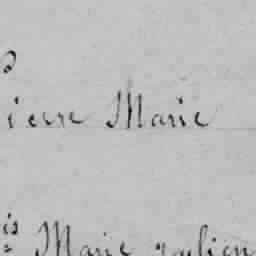 ierre Marie
is Marie Julien